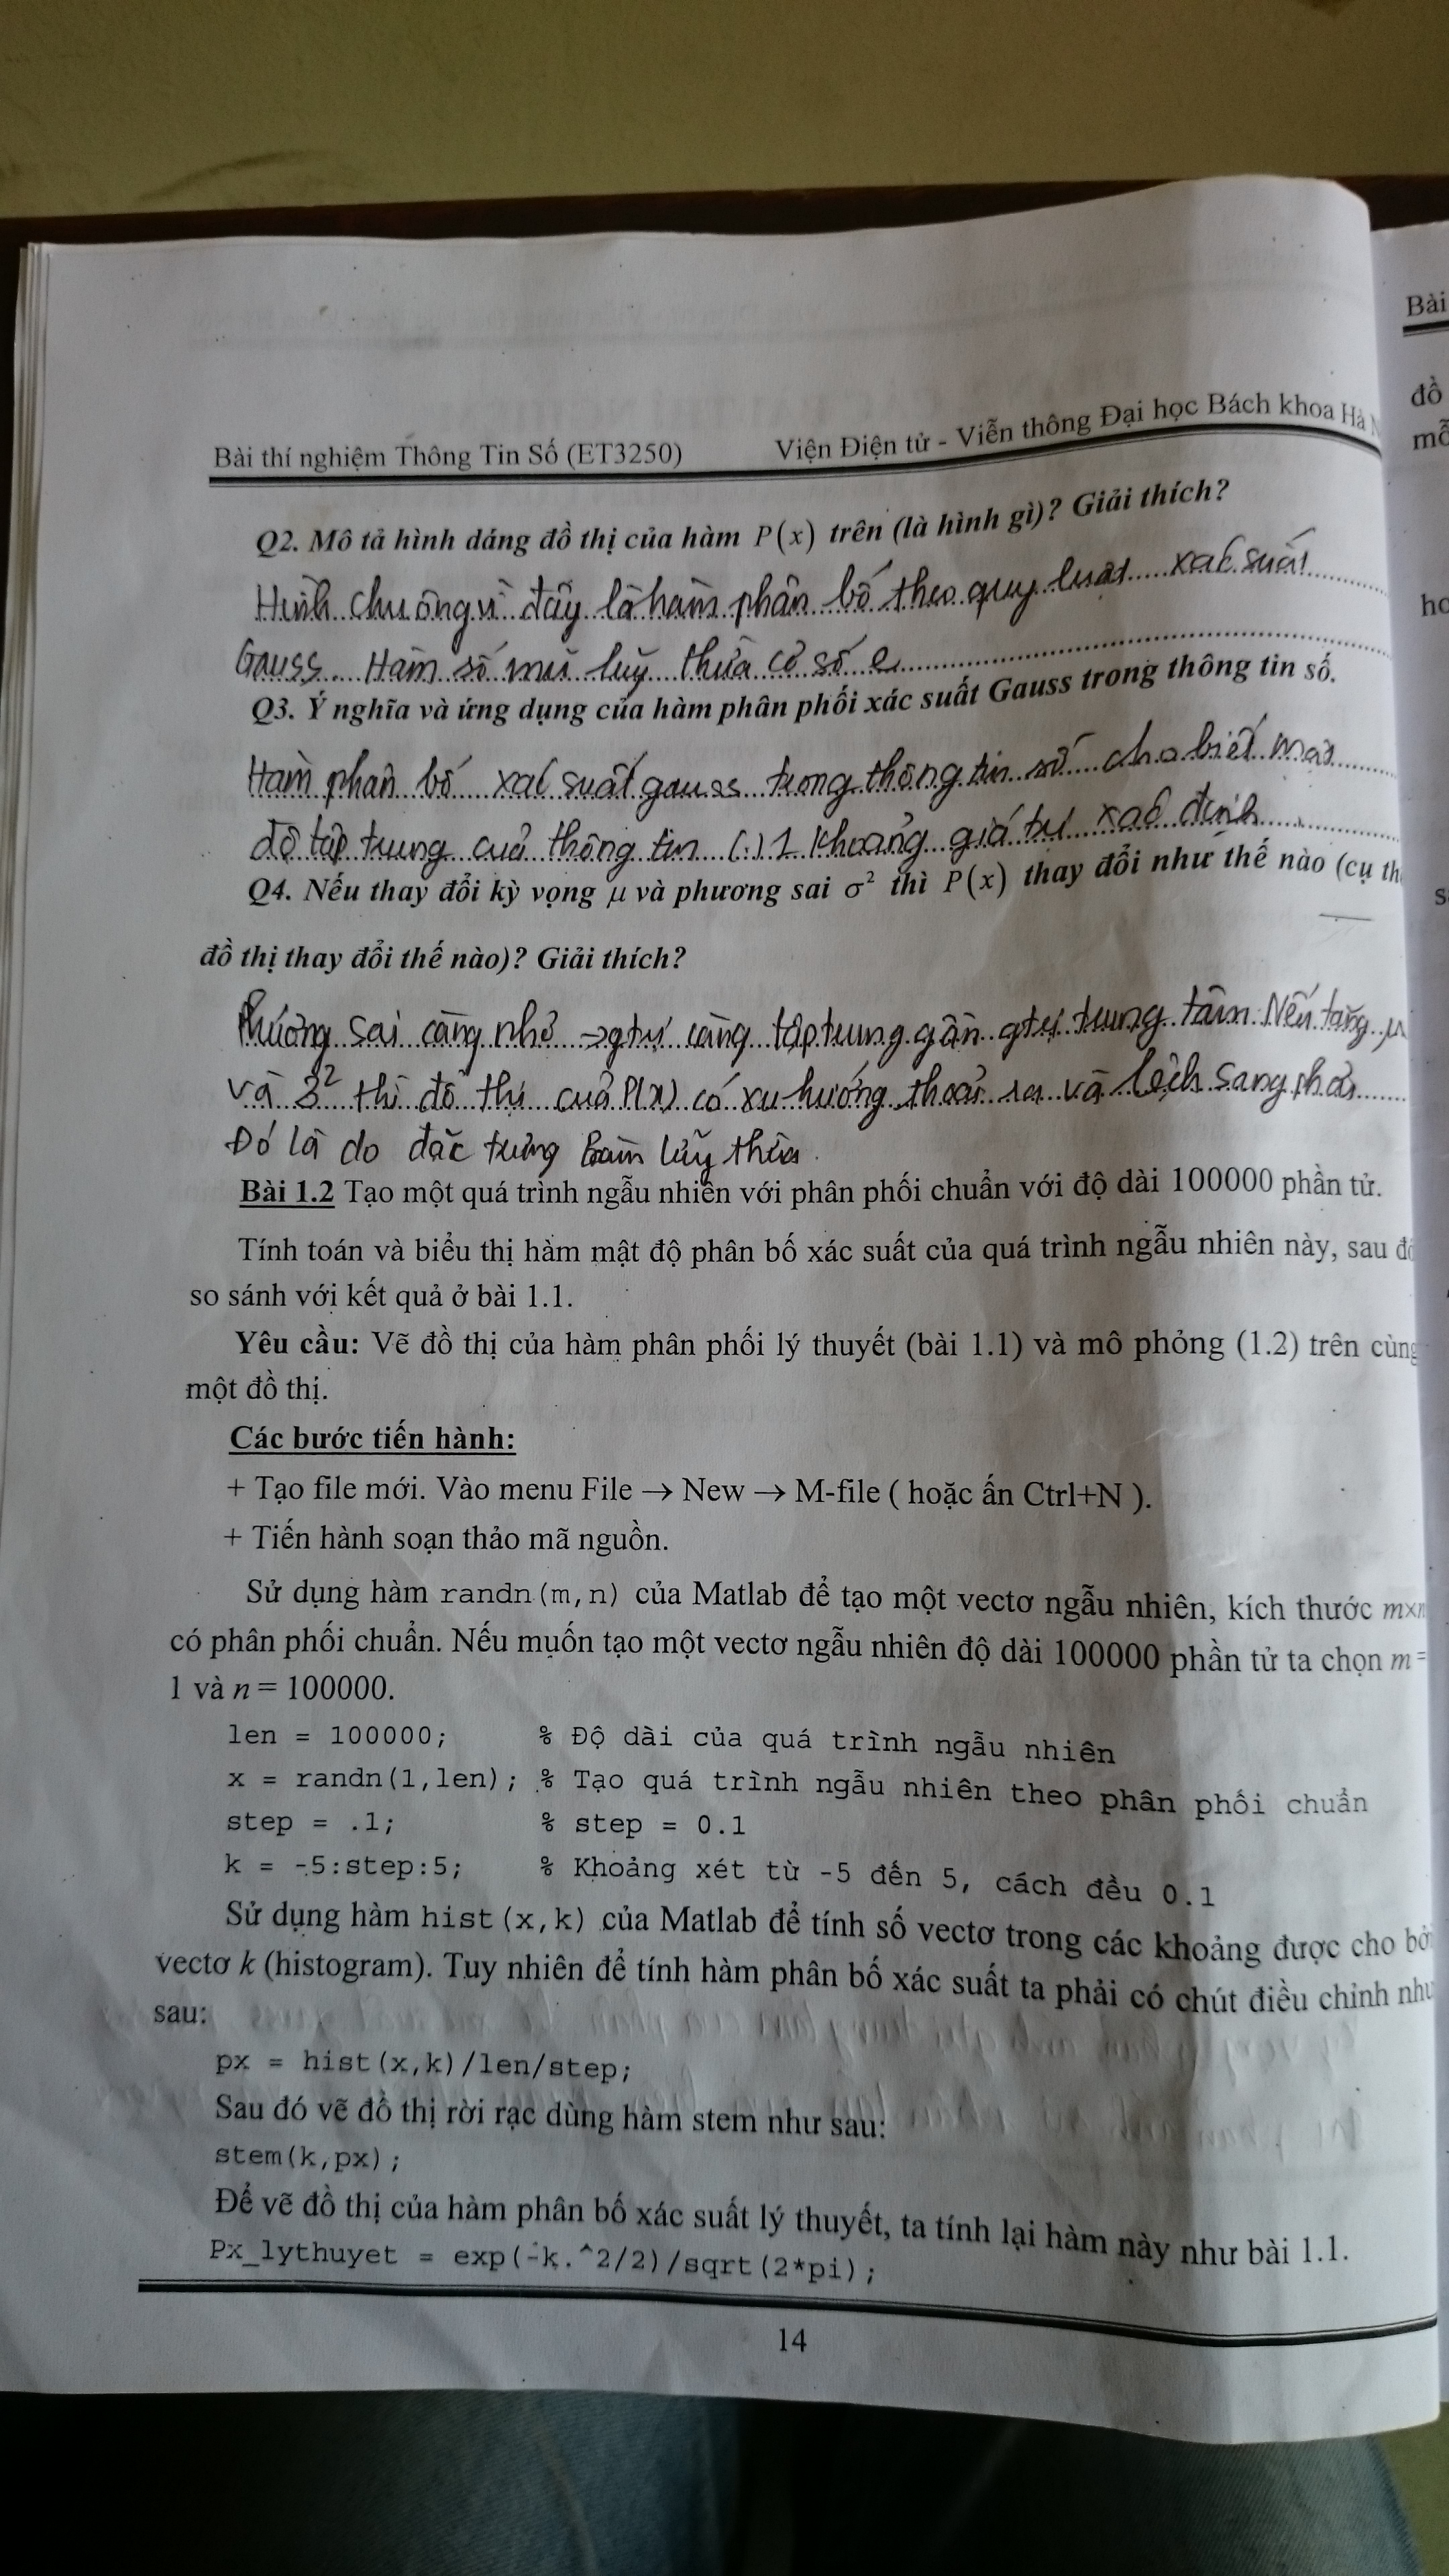 Bài thí nghiệm Thông Tin Số (ET3250) Viện Điện tử - Viễn thông Đại học Bách khoa Hà
Q2. Mô tả hình dáng đồ thị của hàm P(x) trên (là hình gì)? Giải thích?
Hình chuông vì đây là hàm phân bố theo quy luật xác suất
Gauss. Hàm số mũ luỹ thừa cơ số e
Q3. Ý nghĩa và ứng dụng của hàm phân phối xác suất Gauss trong thông tin số.
Hàm phân bố xác suất gauss trong thông tin số cho biết mật
độ tập trung của thông tin (.) 1 khoảng giá trị xác định
Q4. Nếu thay đổi kỳ vọng μ và phương sai σ² thì P(x) thay đổi như thế nào (cụ th
đồ thị thay đổi thế nào)? Giải thích?
Phương sai càng nhỏ → gtrị càng tập trung gần gtrị trung tâm. Nếu tăng μ
và 3² thì đồ thị của P(x) có xu hướng thoải ra và lệch sang phải
Đó là do đặc trưng hàm lũy thừa.
Bài 1.2 Tạo một quá trình ngẫu nhiên với phân phối chuẩn với độ dài 100000 phần tử.
Tính toán và biểu thị hàm mật độ phân bố xác suất của quá trình ngẫu nhiên này, sau đó
so sánh với kết quả ở bài 1.1.
Yêu cầu: Vẽ đồ thị của hàm phân phối lý thuyết (bài 1.1) và mô phỏng (1.2) trên cùng
một đồ thị.
Các bước tiến hành:
+ Tạo file mới. Vào menu File → New → M-file ( hoặc ấn Ctrl+N ).
+ Tiến hành soạn thảo mã nguồn.
Sử dụng hàm randn(m,n) của Matlab để tạo một vectơ ngẫu nhiên, kích thước m×n
có phân phối chuẩn. Nếu muốn tạo một vectơ ngẫu nhiên độ dài 100000 phần tử ta chọn m =
1 và n = 100000.
len = 100000; % Độ dài của quá trình ngẫu nhiên
x = randn(1,len); % Tạo quá trình ngẫu nhiên theo phân phối chuẩn
step = .1; % step = 0.1
k = -5:step:5; % Khoảng xét từ -5 đến 5, cách đều 0.1
Sử dụng hàm hist(x,k) của Matlab để tính số vectơ trong các khoảng được cho bởi
vectơ k (histogram). Tuy nhiên để tính hàm phân bố xác suất ta phải có chút điều chỉnh như
sau:
px = hist(x,k)/len/step;
Sau đó vẽ đồ thị rời rạc dùng hàm stem như sau:
stem(k,px);
Để vẽ đồ thị của hàm phân bố xác suất lý thuyết, ta tính lại hàm này như bài 1.1.
Px_lythuyet = exp(-k.^2/2)/sqrt(2*pi);
14
Bài
đồ
mỗ